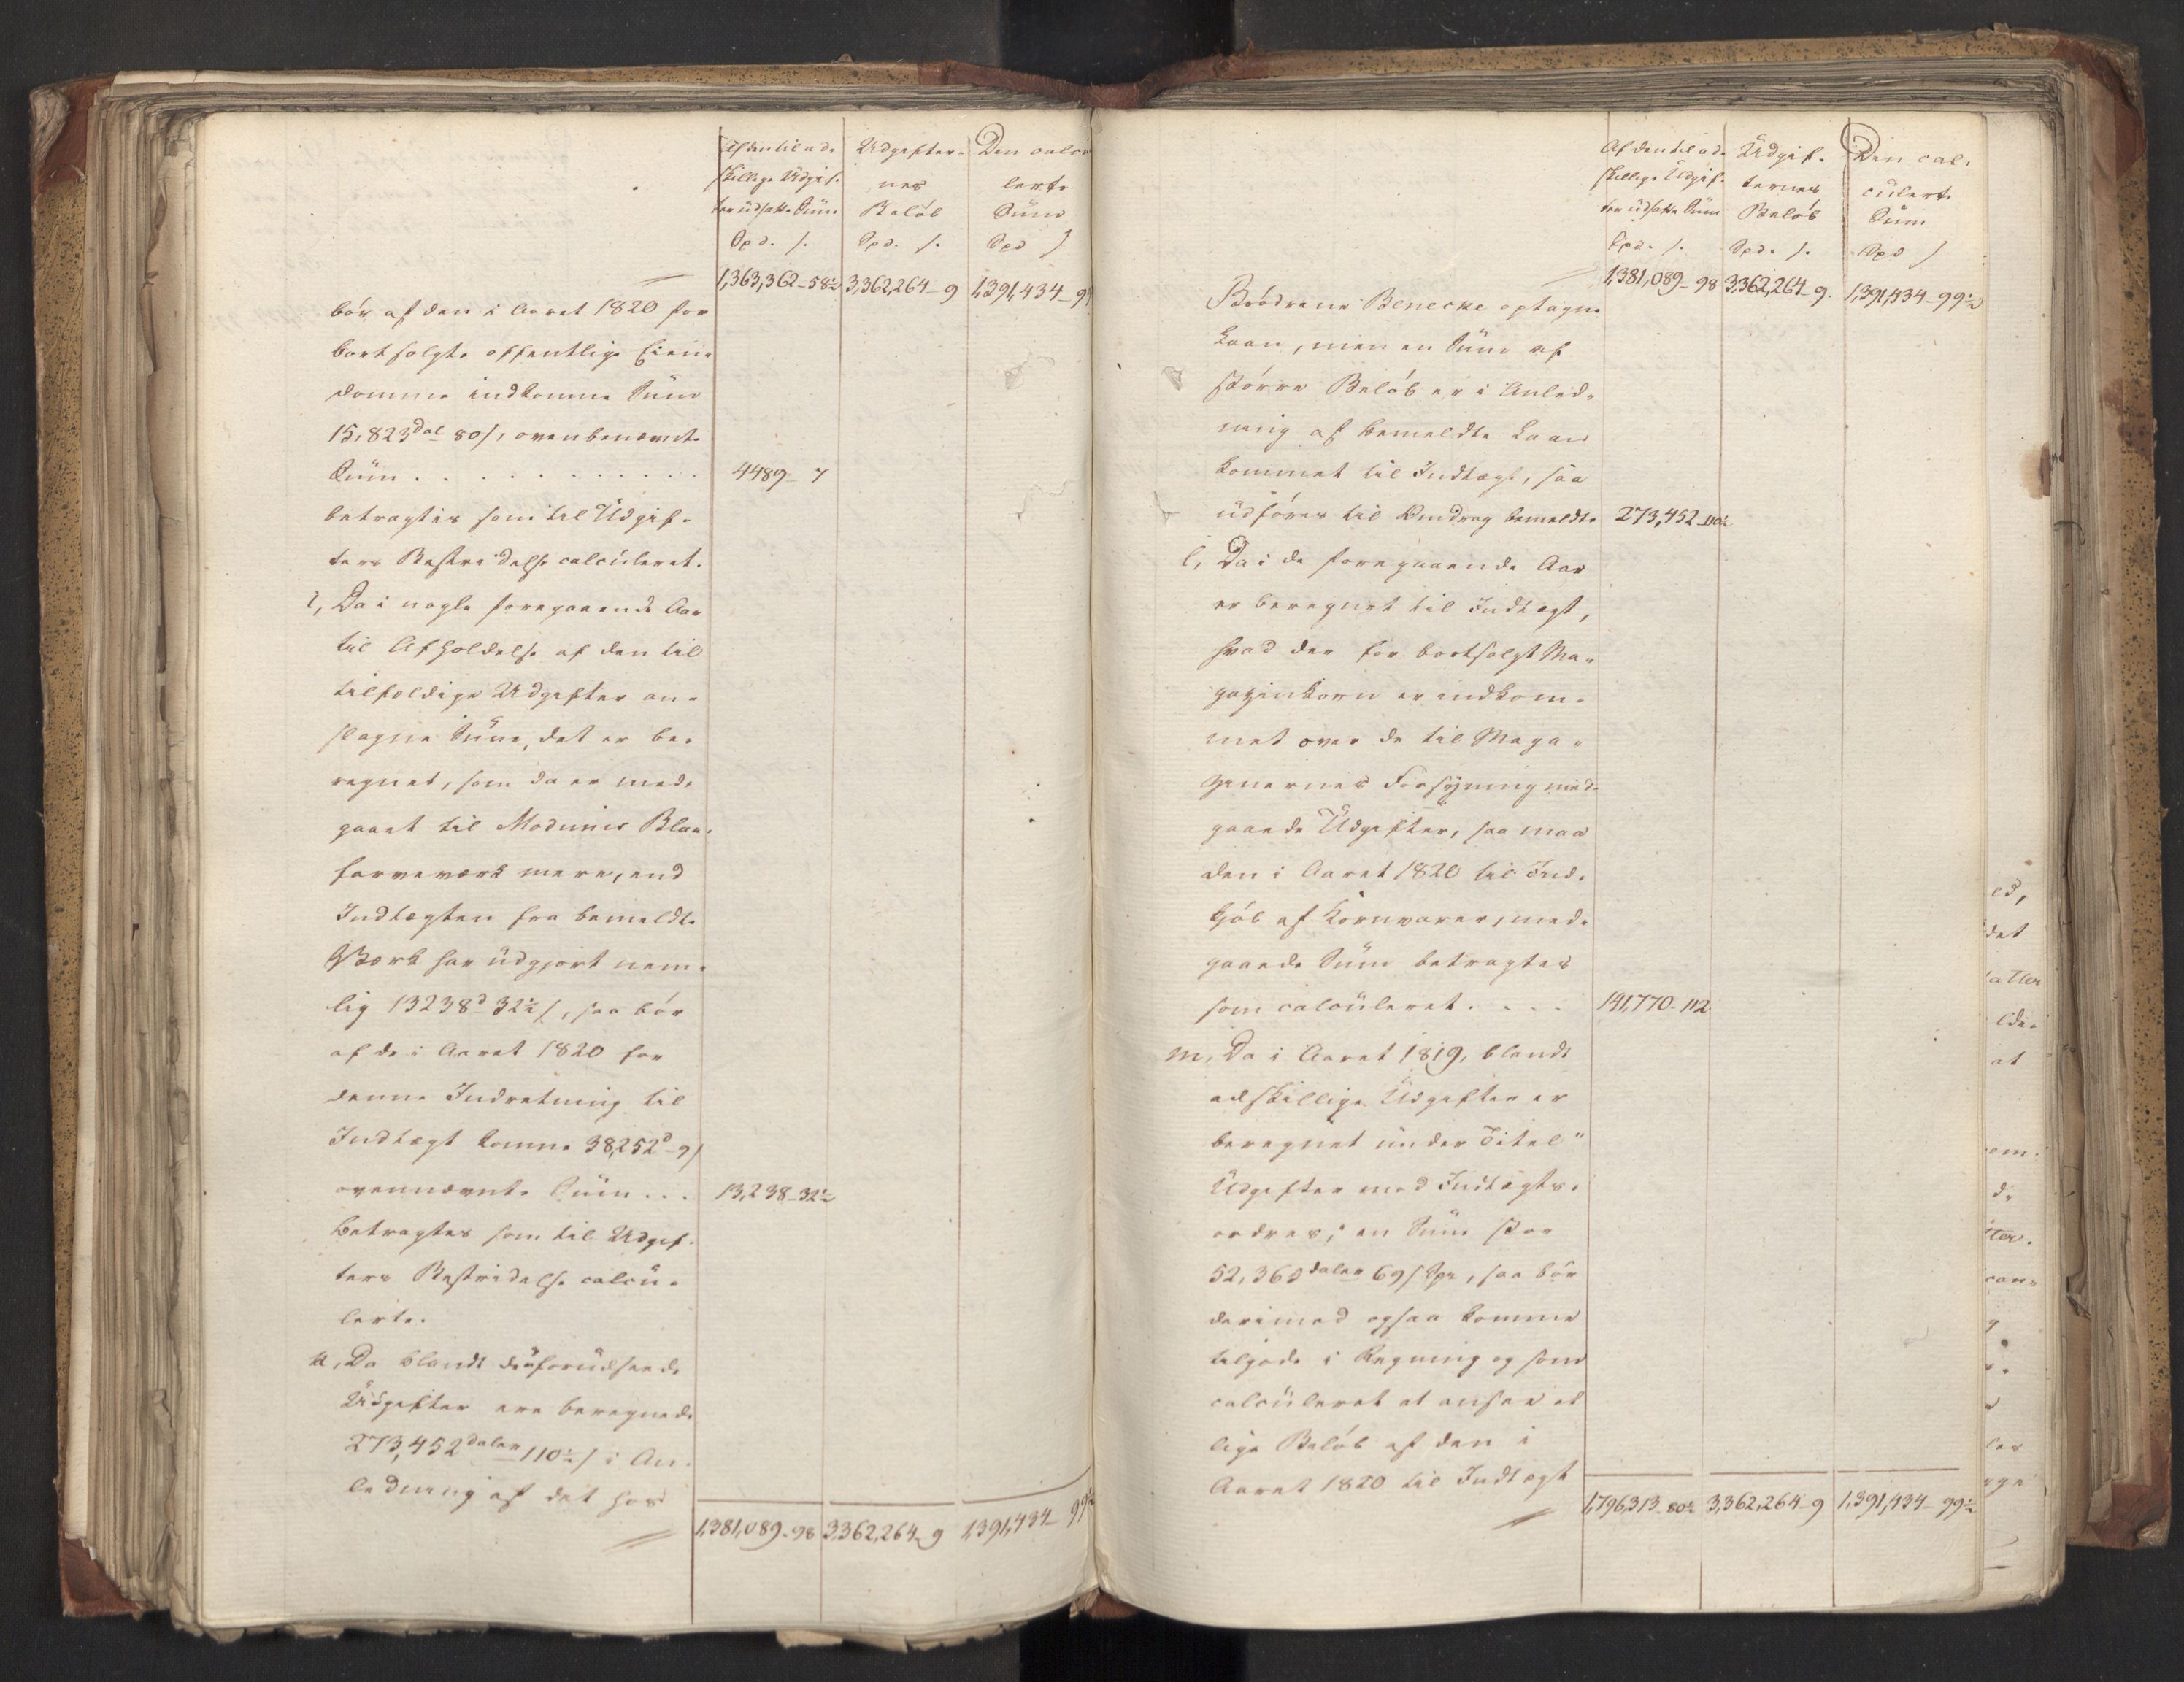 Af den til ad- Udgifter- Den calcu
skillige Udgif- nes lerte
ter udsatte Sum Beløb Sum
Spd. s. Spd. s. Spd s
1,363,362-58½ 3,362,264-9 1,391,434-99
bör af den i Aaret 1820 for
bortsolgte offentlige Eien-
domme indkomne Sum
15,823 Dal 80 s, ovenbenævnte
Sum . . . . . . . . . . 4489-7
betragtes som til Udgif-
ters Bestridelse calculeret.
Da i nogle foregaaende Aar
til Afholdelse af den til
tilfældige Udgifter an-
slagne Sum, det er be-
regnet, som da er med-
gaaet til Modums Blaa-
farveværk mere, end
Indtægten fra bemeldte
Værk har udgjort nem-
lig 13238d 32½ s, saa bör
af de i Aaret 1820 for
denne Indretning til
Indtægt komne 38,252d-9 s
ovennævnte Sum . . . 13,238-32½
betragtes som til Udgif-
ters Bestridelse calcu-
lerte.
k, Da blandt de uforudseede
Udgifter ere beregnede
273,452 daler 110½ s i An-
ledning af det hos
1,381,089-98 3,362,264-9 1,391,434-99½
Af den til ad- Udgif- Den cal-
skillige Udgif- ternes culerte
ter udsatte Sum Beløb Sum
Spd. s. Spd. s. Spd s
1,381,089-98 3,362,264-9. 1,391,434-99½
Brödrene Benecke optagne
Laan, men en Sum af
större Belöb er i Anled-
ning af bemeldte Laan
kommet til Indtægt, saa
udföres til Uddrag bemeldte 273,452-110½
l, Da i de foregaaende Aar
er beregnet til Indtægt,
hvad der for bortsolgt Ma-
gazinkorn er indkom-
met over de til Maga-
zinernes Forsyning med-
gaaede Udgifter, saa maa
den i Aaret 1820 til Ind-
kjöb af Kornvarer, med-
gaaede Sum betragtes
som calculeret . . . . 141,770-112
m, Da i Aaret 1819, blandt
adskillige Udgifter er
beregnet under Titel "
Udgifter mod Indtægts-
ordres," en Sum stor
52,360 daler 69 s Spe, saa bör
derimod ogsaa komme
tilgode i Regning og som
calculeret at ansee et
lige Belöb af den i
Aaret 1820 til Indtægt
1,796,313-80½ 3,362,264-9 1,391,434-99½